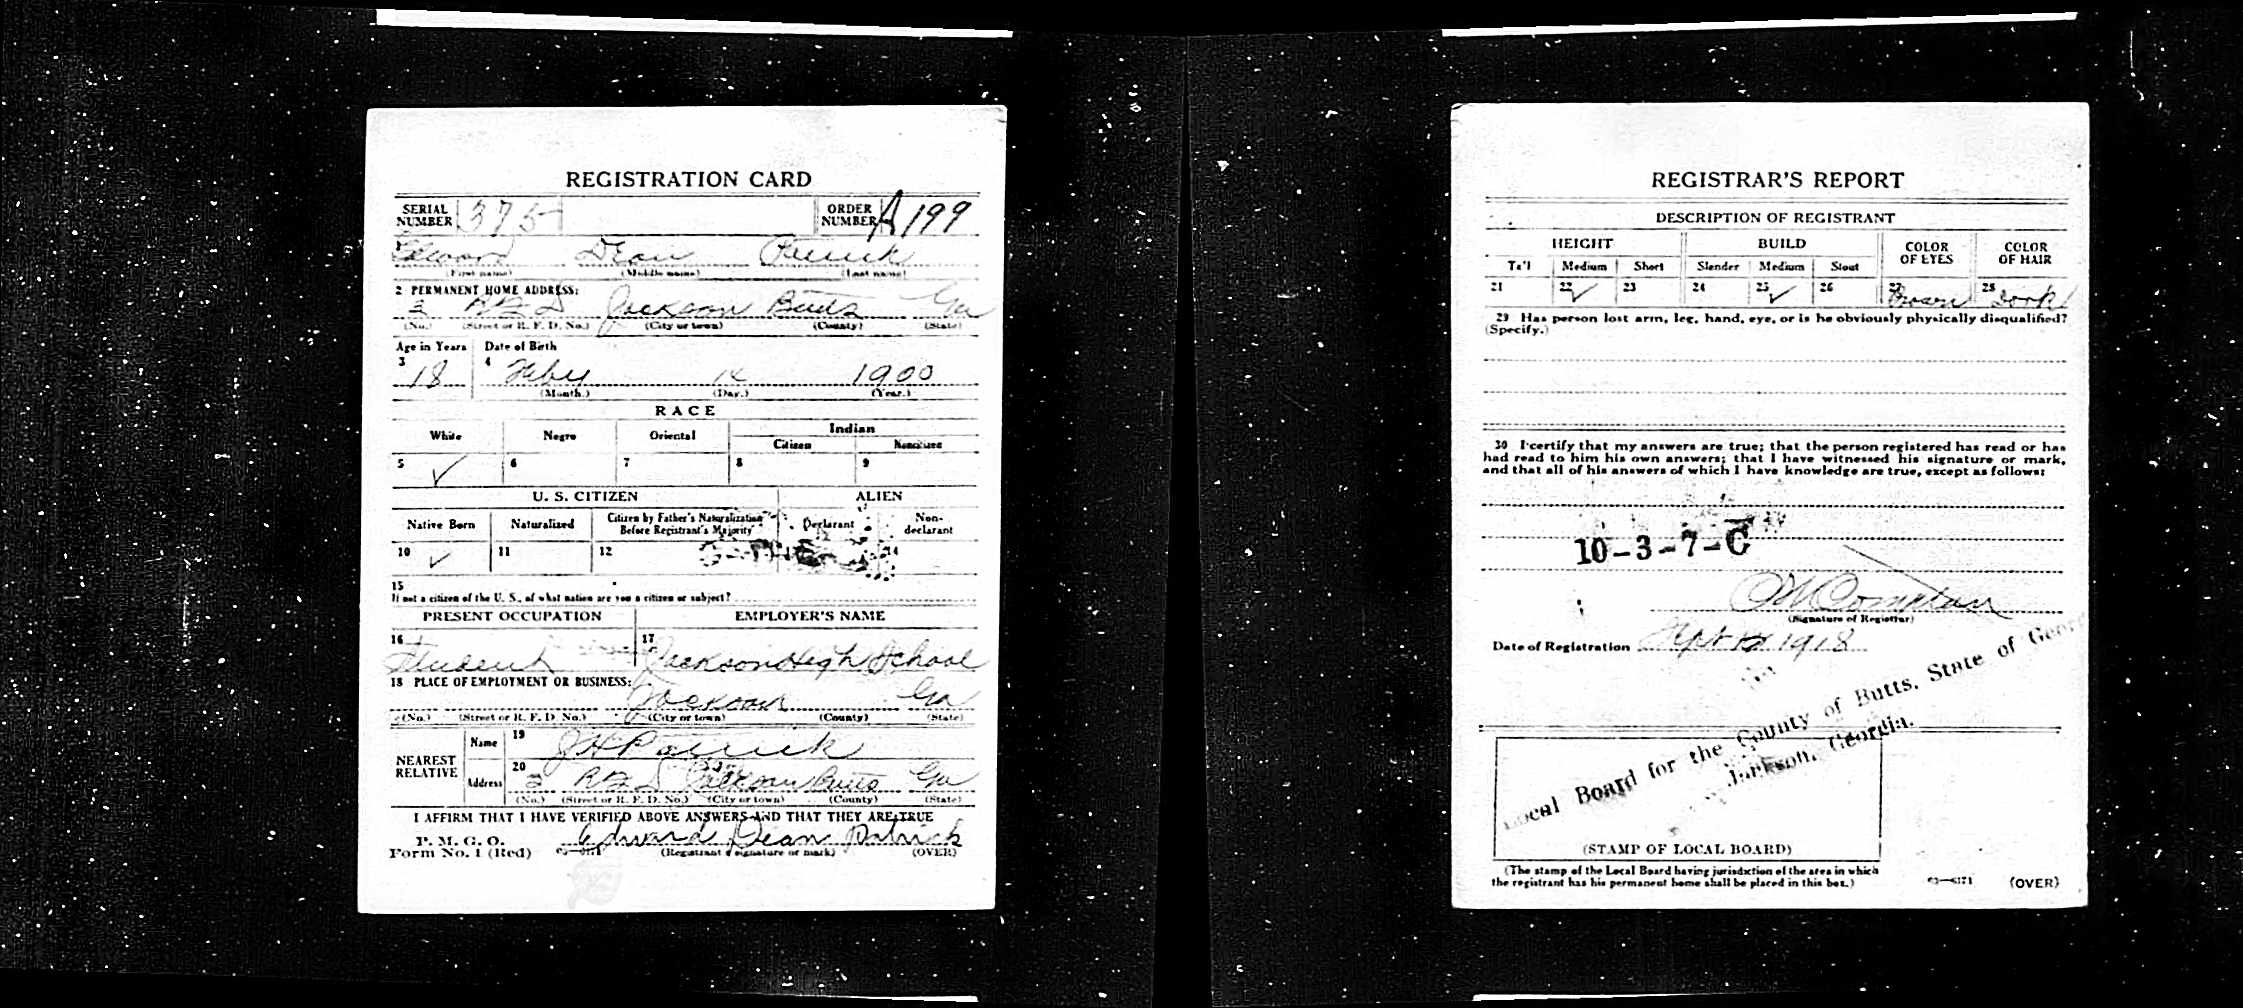 REGISTRATION CARD
SERIAL NUMBER 375 ORDER NUMBER A199
1 Edward Dean Patrick
(First name) (Middle name) (Last name)
2 PERMANENT HOME ADDRESS:
2 RFD Jackson Butts Ga
(No.) (Street or R. F. D. No.) (City or town) (County) (State)
Age in Years Date of Birth
3 18 4 Feby 14 1900
(Month.) (Day.) (Year.)
RACE
White Negro Oriental Indian
Citizen Noncitizen
5 ✓ 6 7 8 9
U. S. CITIZEN ALIEN
Native Born Naturalized Citizen by Father's Naturalization Before Registrant's Majority Declarant Non-declarant
10 ✓ 11 12 14
15
If not a citizen of the U. S., of what nation are you a citizen or subject?
PRESENT OCCUPATION EMPLOYER'S NAME
16 Student 17 Jackson High School
18 PLACE OF EMPLOYMENT OR BUSINESS:
Jackson Ga
(No.) (Street or R. F. D. No.) (City or town) (County) (State)
NEAREST RELATIVE Name 19 J H Patrick
Address 20 2 RFD Jackson Butts Ga
(No.) (Street or R. F. D. No.) (City or town) (County) (State)
I AFFIRM THAT I HAVE VERIFIED ABOVE ANSWERS AND THAT THEY ARE TRUE
P. M. G. O.
Form No. 1 (Red) Edward Dean Patrick
(Registrant's signature or mark) (OVER)
REGISTRAR'S REPORT
DESCRIPTION OF REGISTRANT
HEIGHT BUILD COLOR OF EYES COLOR OF HAIR
Tall Medium Short Slender Medium Stout
21 22 ✓ 23 24 25 ✓ 26 27 Brown 28 Dark
29 Has person lost arm, leg, hand, eye, or is he obviously physically disqualified?
(Specify.)
30 I certify that my answers are true; that the person registered has read or has
had read to him his own answers; that I have witnessed his signature or mark,
and that all of his answers of which I have knowledge are true, except as follows:
10-3-7-C
Compton
(Signature of Registrar)
Date of Registration Sept 12 1918
Local Board for the County of Butts, State of Geor
Jackson, Georgia.
(STAMP OF LOCAL BOARD)
(The stamp of the Local Board having jurisdiction of the area in which
the registrant has his permanent home shall be placed in this box.)
03—6171 (OVER)